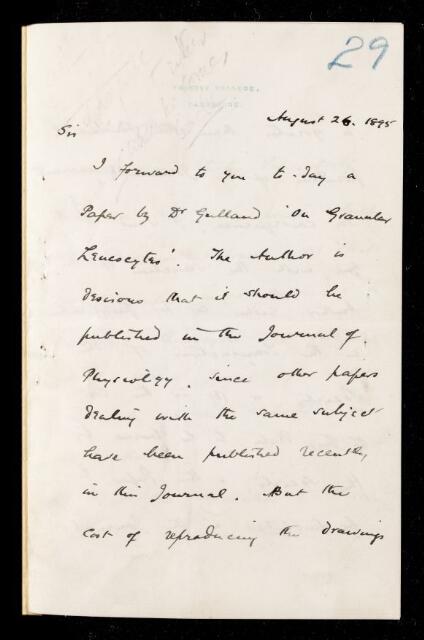 29
TRINITY COLLEGE,
CAMBRIDGE.
August 26. 1895
Sir
I forward to you to-day a
Paper by Dr Gulland 'On Granular
Leucocytes'. The Author is
desirous that it should be
published in the Journal of
Physiology, since other papers
dealing with the same subject
have been published recently,
in this Journal. But the
cost of reproducing the drawings